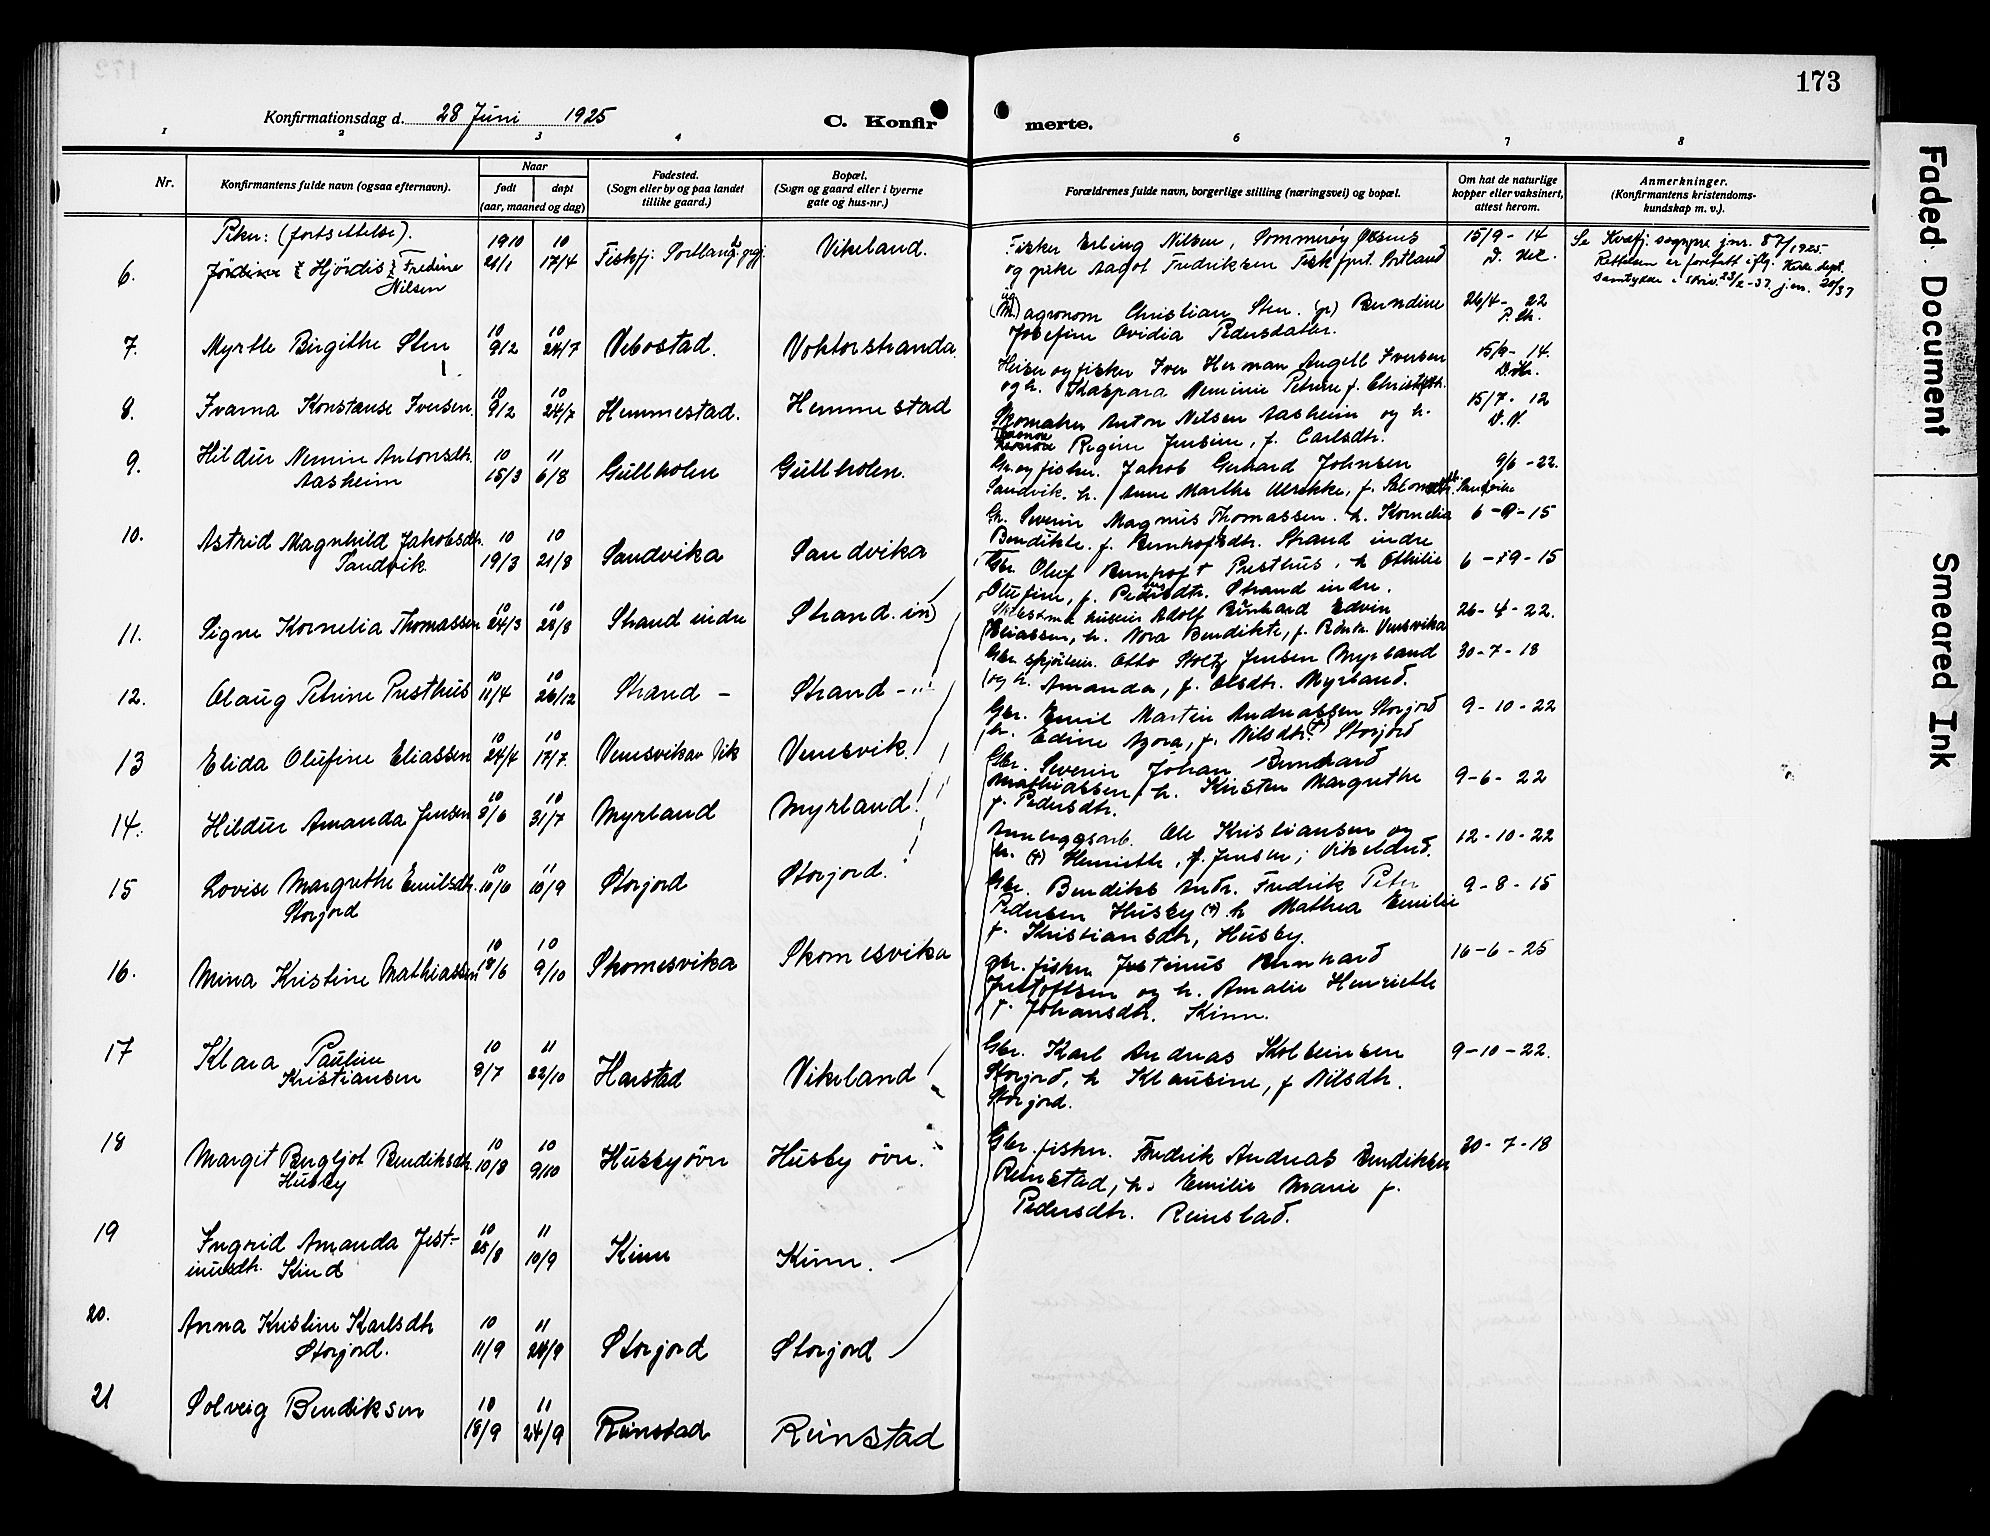 173
Konfirmationsdag d. 28 Juni 1925
C. Konfirmerte.
1 2 3 4 6 7 8
Nr.
Konfirmantens fulde navn (ogsaa efternavn).
Naar
født døpt
(aar, maaned og dag)
Fødested.
(Sogn eller by og paa landet
tillike gaard.)
Bopæl.
(Sogn og gaard eller i byerne
gate og hus-nr.)
Forældrenes fulde navn, borgerlige stilling (næringsvei) og bopæl.
Om hat de naturlige
kopper eller vaksinert,
attest herom.
Anmerkninger.
(Konfirmantens kristendoms-
kundskap m. v.).
Piker: (fortsettelse).
6. Hjördis Fredine
Nilsen
1910 21/1
10 17/4
Vikeland.
Fisker Erling Nilsen, Sommerøy Øksnes
og pike Aagot Fredriksen
15/9 - 14
7. Myrtle Birgithe Sten
10 9/2
10 24/7
Vebostad.
Voktorstranda.
agronom Christian Sten
Josefine Ovidia Pedersdatter.
26/4 - 22
8. Ivarna Konstanse Iversen.
10 9/2
10 24/7
Hemmestad.
Hemmestad
og fisker Iver Herman Angell Iversen
og h. Kaspara
15/9 - 14.
9. Hildur Nemine Antonsdtr.
Aasheim
10 15/3
11 6/8
Gullholen
Gullholen.
Skomaker Anton Nilsen Aasheim og h.
Regine Jensine, f. Carlsdtr.
15/7 - 12
10. Astrid Magnhild Jakobsdtr.
Sandvik
10 19/3
10 21/8
Sandvika
Sandvika
Gbr. og fisker. Jakob Gerhard Johnsen
Sandvik. h. Anne Marthe Ulrikke, f.
9/6 - 22.
11. Signe Kornelia Thomassen
10 24/3
10 28/8
Strand indre
Strand. in)
Gbr. Severin Magnus Thomassen. h. Kornelia
Bendikte. f. Strand indre
6 - 9 - 15
12. Olaug Petrine Presthus
10 11/4
10 26/12
Strand -
Strand -
Gbr. Oluf Presthus. h Othilie
Olufine, f. Strand indre.
6 - 9 - 15
13 Elida Olufine Eliassen
10 24/4
10 17/7
Vensvik
Adolf Bernhard Edvin
Eliassen, h. Nora Bendikte, f.
26 - 4 - 22.
14. Hildur Amanda Jensen
10 8/6
10 31/7
Myrland
Myrland
Gbr. Otto Stoltz Jensen Myrland
og h. Amanda, f. Olsdtr. Myrland.
30 - 7 - 18
15 Lovise Margrethe Emilsdtr.
Storjord
10 10/6
11 10/9
Storjord
Storjord.
Gbr. Emil Martin Andreassen Storjord
h. Edine f. Nilsdtr. Storjord
9 - 10 - 22
16. Mina Kristine Mathiassen
10 18/6
10 9/10
Skomesvika
Skomesvika
Gbr. Severin Johan Bernhard
Mathiassen, h. Kristen Margrethe
f. Pedersdtr.
9 - 6 - 22
17 Klara Pauline
Kristiansen
10 8/7
11 22/10
Harstad
Vikeland
Anleggsarb. Ole Kristiansen og
h. (†) Henriette, f. Jensen; Vikeland.
12 - 10 - 22
18 Margit Bergljot Bendiksdtr.
Husby
10 10/8
10 9/10
Husby øvre
Husby øvre.
Gbr. Bendiks Andr. Fredrik Peter
Pedersen Husby (†) h Mathea Emilie
f. Kristiansdtr, Husby.
9 - 8 - 15
19 Ingrid Amanda Jest-
inusdtr. Kind
10 25/8
11 10/9
Kinn
Kinn.
gbr. fisker Justinus Bernhard
Justoffsen og h. Amalie Henriette
f. Johansdtr. Kinn.
16 - 6 - 25
20. Anna Kristine Karlsdtr
Storjord.
10 11/9
11 24/9
Storjord
Storjord
Gbr. Karl Andreas Kolbeinsen
Storjord, h Klausine, f Nilsdtr.
Storjord.
9 - 10 - 22.
21 Solveig Bendiksen
10 18/9
11 24/9
Reinstad
Reinstad
Gbr. fisker. Fredrik Andreas Bendiksen
Reinstad, h. Emilie Marie f.
Pedersdtr. Reinstad.
30 - 7 - 18
Faded Document
Smeared Ink